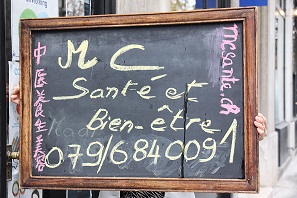 M C
Santé et
Bien-être
079/6840091
中医养生美
mcsante.ch